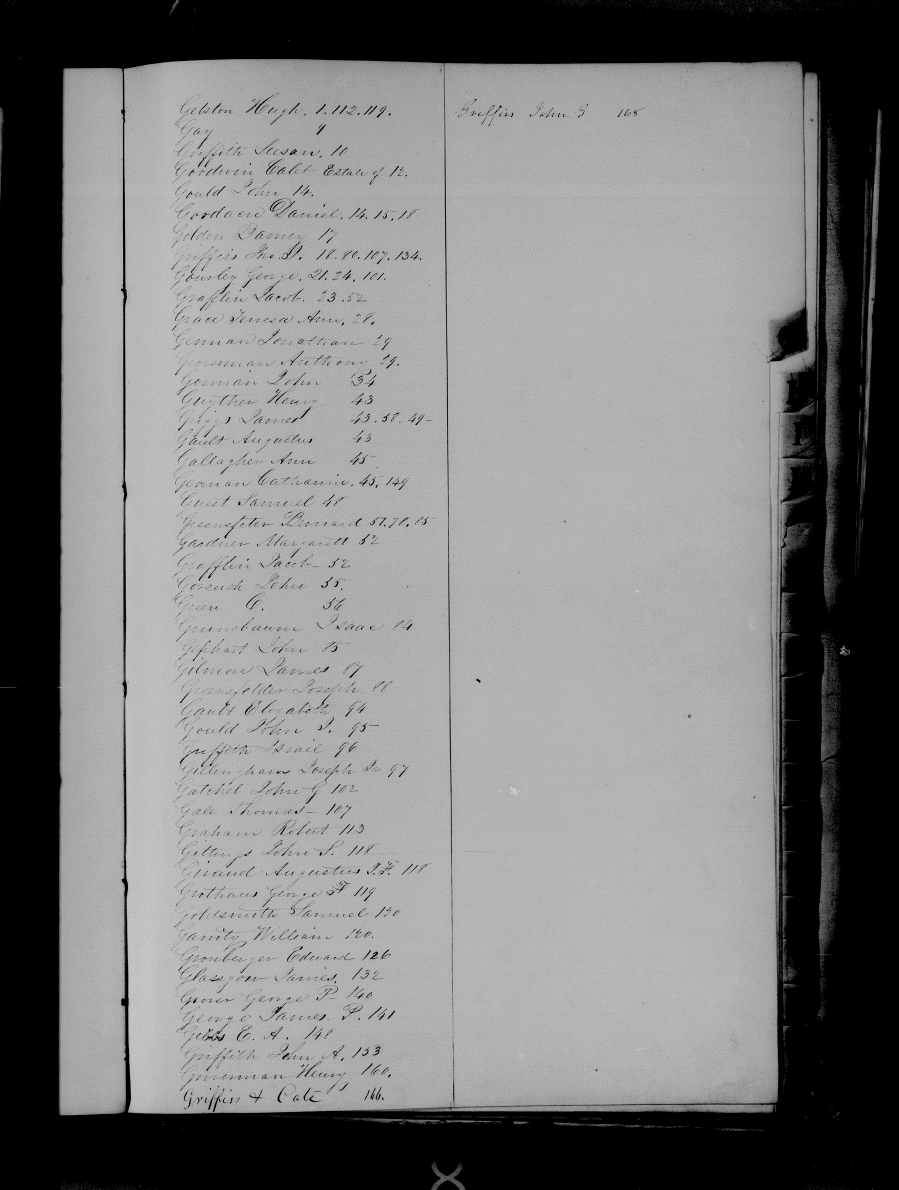 Gelston Hugh. 1. 112. 119.
Gay 9
Griffith Susan. 10
Goodwin Caleb Estate of 12.
Gould John 14.
Daniel. 14. 15. 18
Golden James 17
Griffiss Jno. I. 18. 80. 107. 134.
Gousley George. 21. 24. 101.
Grafflin Jacob. 23. 52
Grace Teresa Ann. 28.
German Jonathan 29
Grossman Anthony 29.
Gorman John 34
Guyther Henry 43
Griggs James 43. 58. 49
Gault Augustus 43
Gallagher Ann 45
German Catharine. 45. 149
Guest Samuel 48
Bernard 51. 78. 85
Gardner Margarett 52
Grafflin Jacob 52
Gorsuch John 55.
Green C. 56
Greensbaum Isaac 84
Gephart John 85
Gilmore James 87
Greensfelder Joseph 88
Gault Elizabeth 94
Gould John I. 95
Griffith Israel 96
Gillingham Joseph 97
Gatchel John G 102
Gale Thomas 107
Graham Robert 113
Gittings John S. 118
Giraud Augustus J. F. 118
Grothaus George F 119
Goldsmith Samuel 120
Garrity William 120.
Gronberger Edward 126
Glassgow James. 132
Grover George P 140
George James P. 141
Gibbs E. A. 148
Griffith John A. 153
Henry 160.
Griffiss & Cate 166.
Griffiss John G 168